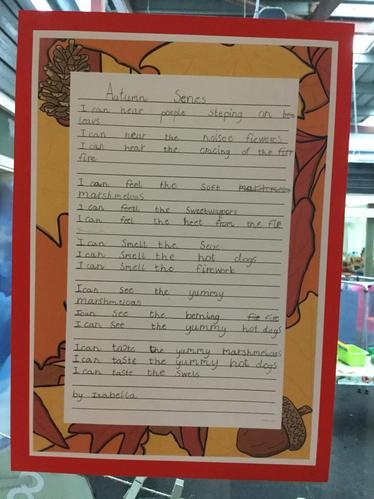 Autumn Senses
I can hear people steping on
leavs
I can hear the noisee fiewercs
I can hear the cracing of the fier
fire
I can feel the soft
marshmeloas
I can feell the Sweetwrapers
I can feel the heet from the fie
I can Smell the
I can Smell the hot dogs
I can Smell the firework
I can see the yummy
marshmelloas
I can See the berning fire
I can See the yummy hot dogs
I can taste the yummy marshmeloas
I can taste the yummy hot dogs
I can taste the Swets
by Izabella